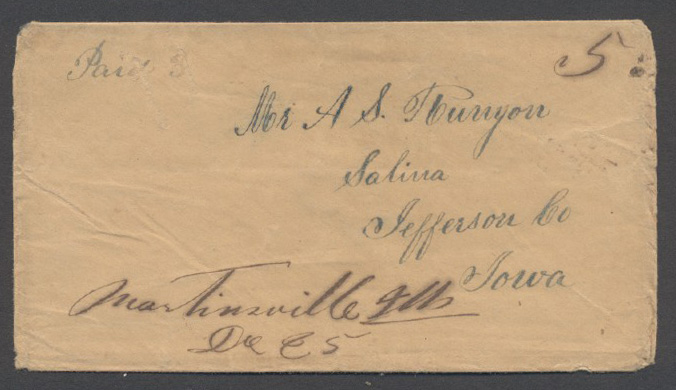 Paid 3
5
Mr A S. Runyon
Salina
Jefferson Co
Iowa
Martinsville Ills
Dec 5